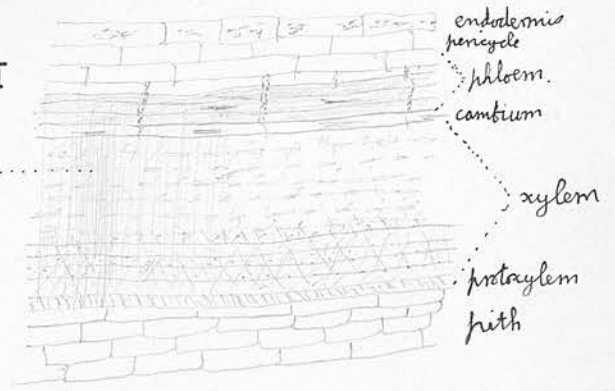 endodermis
pericycle
phloem.
cambium
xylem
protoxylem
pith